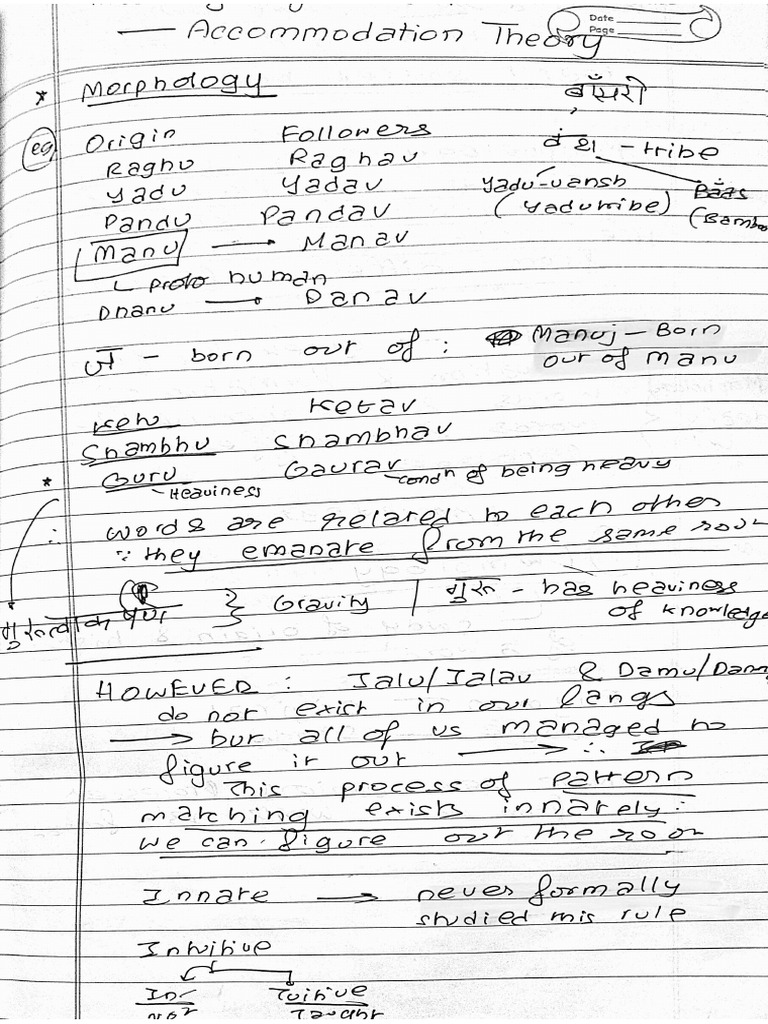 Date
Page
— Accommodation Theory
* Morphology बाँसरी
eg Origin Followers वंश - tribe
Raghu Raghav
Yadu Yadav Yadu-vansh Baas
Pandu Pandav (Yadu tribe) (Bamboo
Manu → Manav
↳ proto human
Dhanu → Danav
ज - born out of : Manuj - Born
out of Manu
Ketu Ketav
Shambhu Shambhav
* Guru Gaurav - condn of being heavy
- Heaviness
∴ words are related to each other
∵ they emanate from the same root
} Gravity | गुरू - has heaviness
of knowledge
HOWEVER : Jalu/Jalav & Damu/Dam
do not exist in our langs
→ but all of us managed to
figure it out → ∴
This process of pattern
matching exists innately:
we can figure out the root
Innate → never formally
studied this rule
Intuitive
In Tuitive
Not Taught